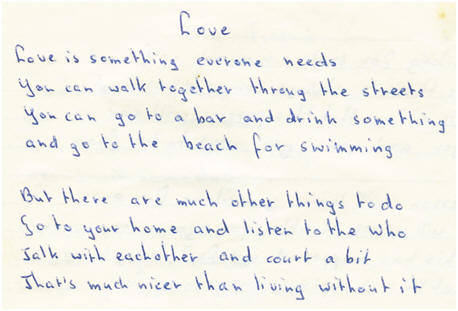 Love
Love is something everone needs
You can walk together throug the streets
You can go to a bar and drink something
and go to the beach for swimming
But there are much other things to do
Go to your home and listen to the Who
Talk with eachother and court a bit
That's much nicer than living without it